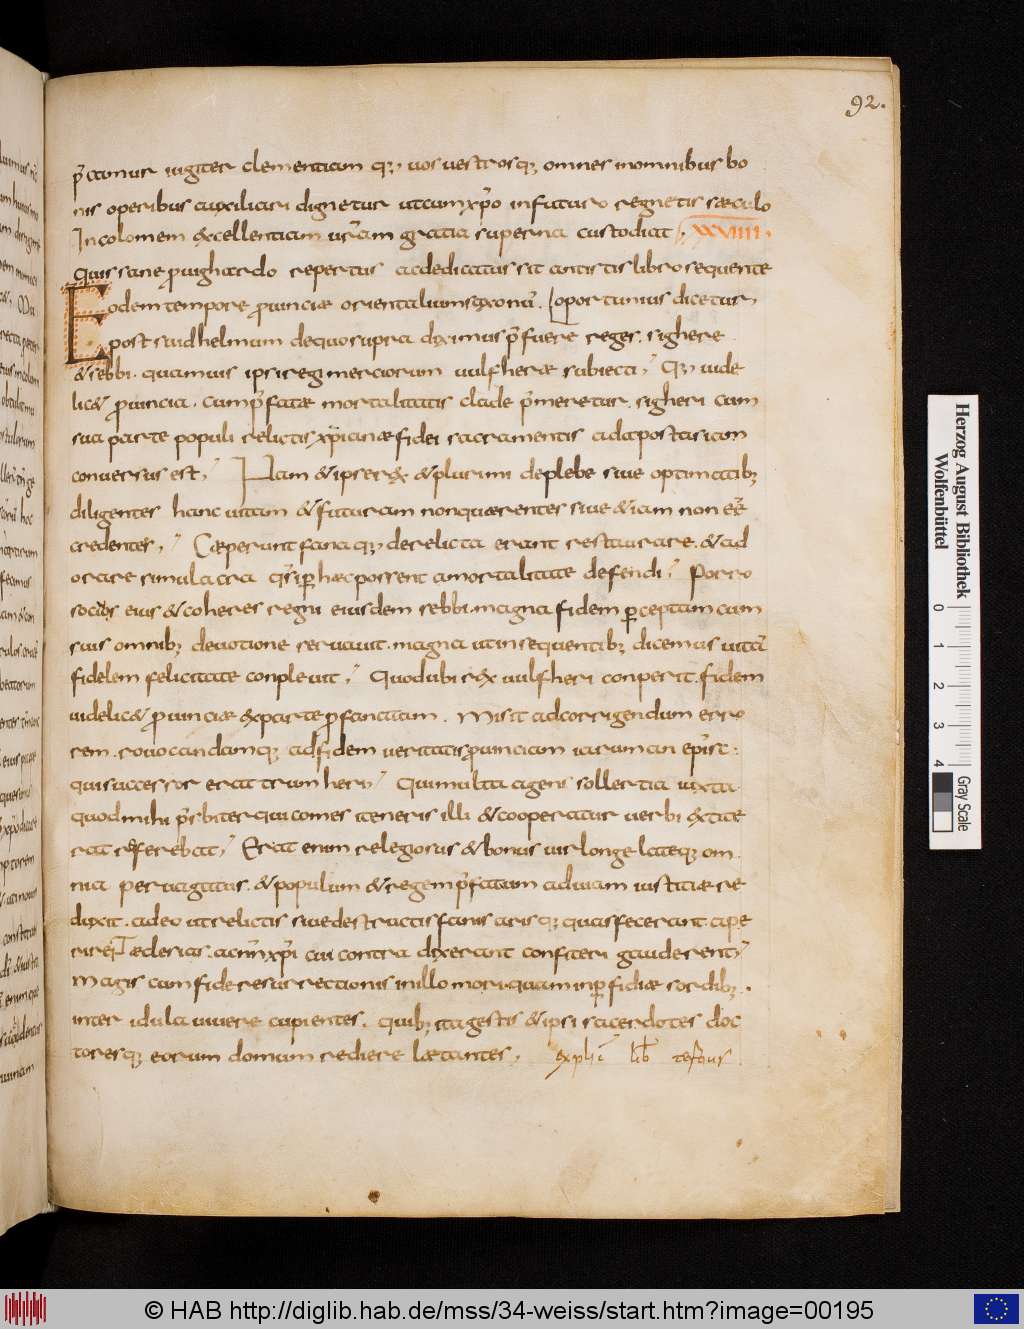 92.
p̄camur iugiter clementiam q; uos uestrosq; omnes inomnibus bo
nis operibus auxiliari dignetur utcum xp̄o infuturo regnetis sæculo
Incolomem excellentiam ur̄am gratia superna custodiat; XXVIIII.
quis sane pro uighardo repertus acdedicatus sit antistis libro sequente
Eodem tempore prouinciæ orientalium saxonū. oportunius dicetur,
post suidhelmum dequo supra diximus p̄fuere reges. sighere
& sebbi. quamuis ipsi regi merciorum uulfheræ subiecti; Q; uide
lic& prouincia. cum p̄fatæ mortalitatis clade p̄meretur. sigheri cum
sua parte populi relictis xp̄ianæ fidei sacramentis adapostasiam
conuersus est; Nam & ipse rex & plurimi deplebe siue optimatib;
diligentes hanc uitam & futuram nonquærentes siue & iam non eē
credentes; Cæperunt fana q; derelicta erant restaurare. & ad
orare simulacra q̄si per hæc possent amortalitate defendi; Porro
socius eius & coheres regni eiusdem sebbi. magna fidem perceptam cum
suis omnib; deuotione seruauit. magna utinsequentib; dicemus uitā
fidelem felicitate conpleuit; Quod ubi rex uulfheri conperit. fidem
uidelic& prouinciæ exparte profanatam. Misit adcorrigendum erro
rem. reuocandamq; adfidem ueritatis prouinciam iaruman episc:
qui successor erat trumheri; Qui multa agens sollertia iuxta
quod mihi p̄rbiter qui comes iteneris illi & cooperatur uerbi extite
rat referebat; Erat enim relegiosus & bonus uir longe lateq; om
nia peruagatus. & populum & regem p̄fatum aduiam iustitiæ re
duxit. adeo ut relictis siue destructis fanis arisq; quas fecerant. ape
rirent æclesias. ac nn̄ xp̄i cui contra dixerant confiteri gauderent;
Magis cum fide resurrectionis in illo mori. quam in perfidiæ sordib;.
inter idula uiuere cupientes. quib; ita gestis & ipsi sacerdotes doc
toresq; eorum domum rediere lætantes; explī lib̄ tertius.
Herzog August Bibliothek
Wolfenbüttel
0 1 2 3 4
Gray Scale
© HAB http://diglib.hab.de/mss/34-weiss/start.htm?image=00195